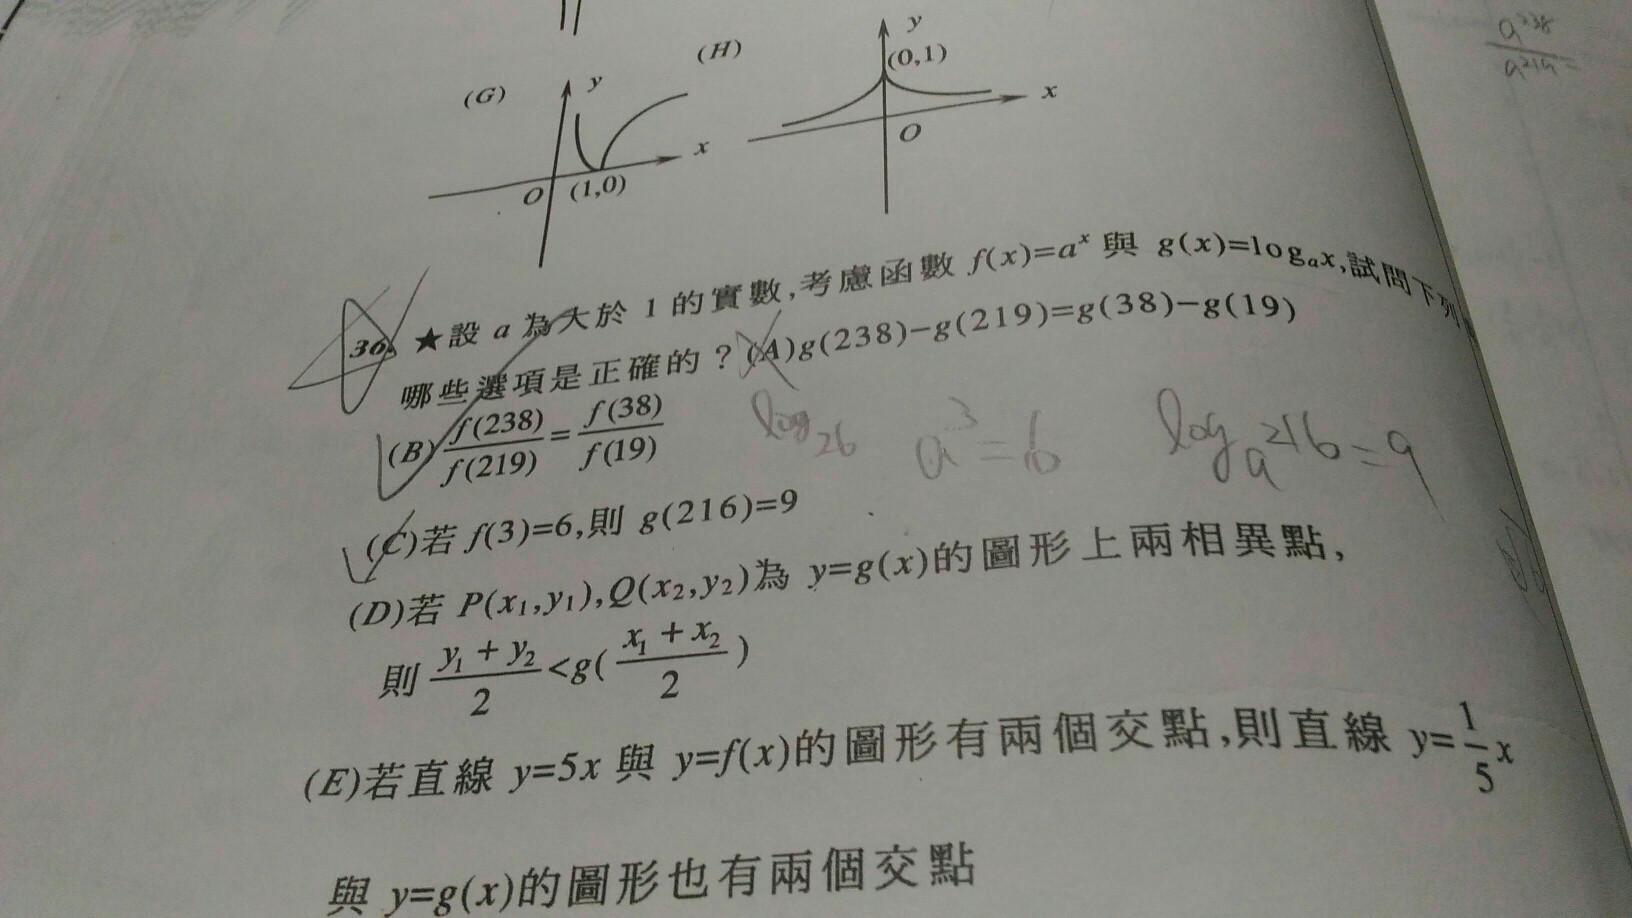 (G) y x O (1,0)
(H) y (0,1) x O
a^238 / a^219 =
36. ★設 a 為大於 1 的實數,考慮函數 f(x)=a^x 與 g(x)=log_a x,試問下列
哪些選項是正確的?(A)g(238)−g(219)=g(38)−g(19)
(B) f(238)/f(219) = f(38)/f(19)
log 26 a^3=6 log_a 216=9
(C)若 f(3)=6,則 g(216)=9
(D)若 P(x₁,y₁),Q(x₂,y₂)為 y=g(x)的圖形上兩相異點,
則 (y₁+y₂)/2 <g( (x₁+x₂)/2 )
(E)若直線 y=5x 與 y=f(x)的圖形有兩個交點,則直線 y=1/5 x
與 y=g(x)的圖形也有兩個交點